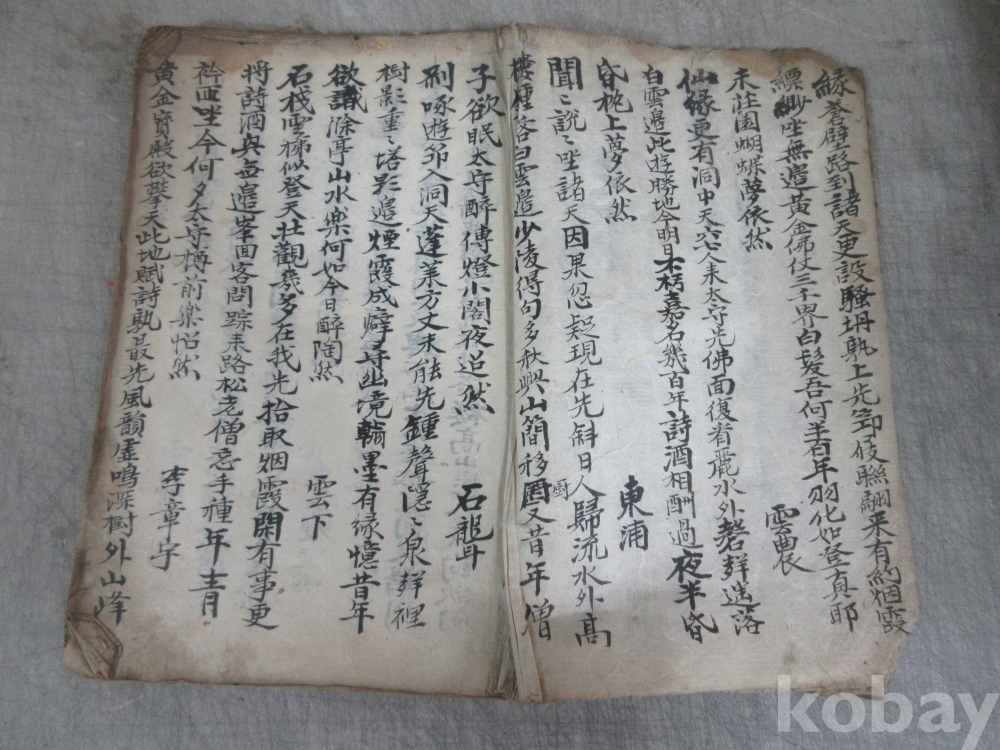 緣蒼壁路到諸天更設騷坍孰上先卸伋聯翩来有約烟霞
縹緲坐無邉黄金佛仗三千界白髮吾何半百年羽化如登真耶
未莊園蝴蝶夢依然
雲農
仙緣更有洞中天六七人来太守先佛面復看麗水外磬鮮遙落
白雲邉此遊勝地今明日木朽嘉名幾百年詩酒相酬過夜半昏
昏枕上夢依然
東浦
聞〻説〻坐諸天因果忽疑現在先斜日人歸流水外高
樓種客白雲邉少陵得句多秋興山簡移厨又昔年僧
子欲眠太守醉傳燈小閣夜迢然
石龍斗
刑啄遊笻入洞天蓬莱方丈未能先鍾聲隠〻泉鮮裡
樹影重〻塔影邉煙霞成癖尋幽境翰墨有緣憶昔年
欲識滁亭山水樂何如今日醉陶然
雲下
石棧雲梯似登天壮觀幾多在我先拾取烟霞閑有事更
將詩酒與無邉峯面客問踪来路松老僧忘手種年
衿匝坐今何夕太守樽前樂怡然
李章宇
黄金寳殿欲擎天此地賦詩孰最先風韻虛鳴深樹外山峰
kobay